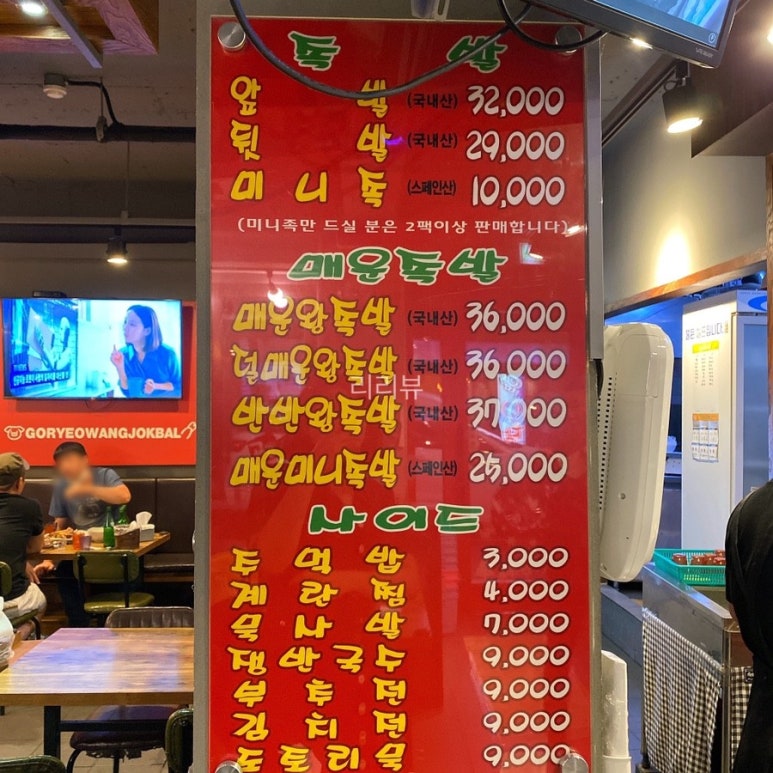 족 발
앞 발 (국내산) 32,000
뒷 발 (국내산) 29,000
미 니 족 (스페인산) 10,000
(미니족만 드실 분은 2팩이상 판매합니다)
매운족발
매운왕족발 (국내산) 36,000
덜매운왕족발 (국내산) 36,000
반반왕족발 (국내산) 37,000
리리뷰
매운미니족발 (스페인산) 25,000
사이드
주 먹 밥 3,000
계 란 찜 4,000
묵 사 발 7,000
쟁반국수 9,000
부 추 전 9,000
김 치 전 9,000
도토리묵 9,000
GORYEOWANGJOKBAL